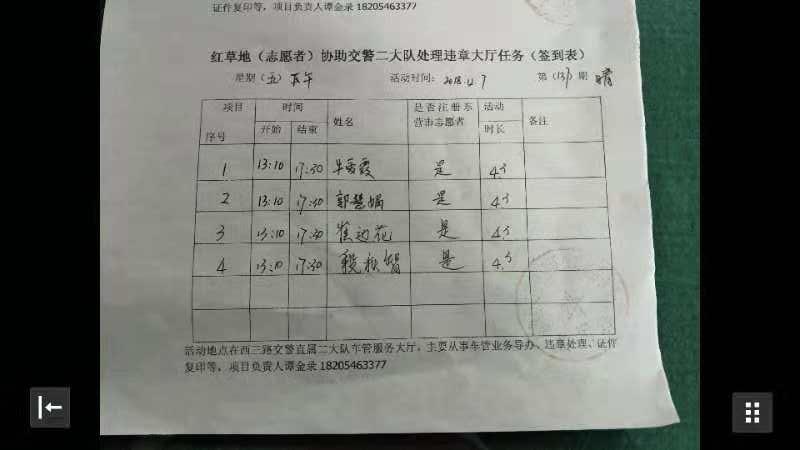 证件复印等，项目负责人谭金录 18205463377
红草地（志愿者）协助交警二大队处理违章大厅任务（签到表）
星期（五）下午 活动时间：2018.12.7 第（137）期 晴
项目 时间 姓名 是否注册东营市志愿者 活动时长 备注
序号 开始 结束
1 13:10 17:30 牛秀霞 是
2 13:10 17:30 郭慧娟 是
3 13:10 17:30 是
4 13:10 17:30 是
活动地点在西三路交警直属二大队车管服务大厅，主要从事车管业务导办、违章处理、证件
复印等，项目负责人谭金录 18205463377